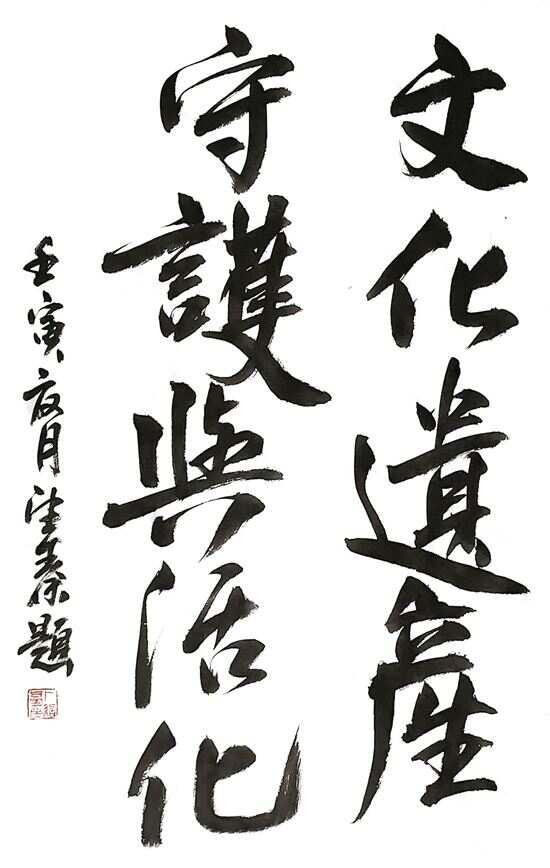 文化遺產
守護與活化
壬寅夏月望秦題